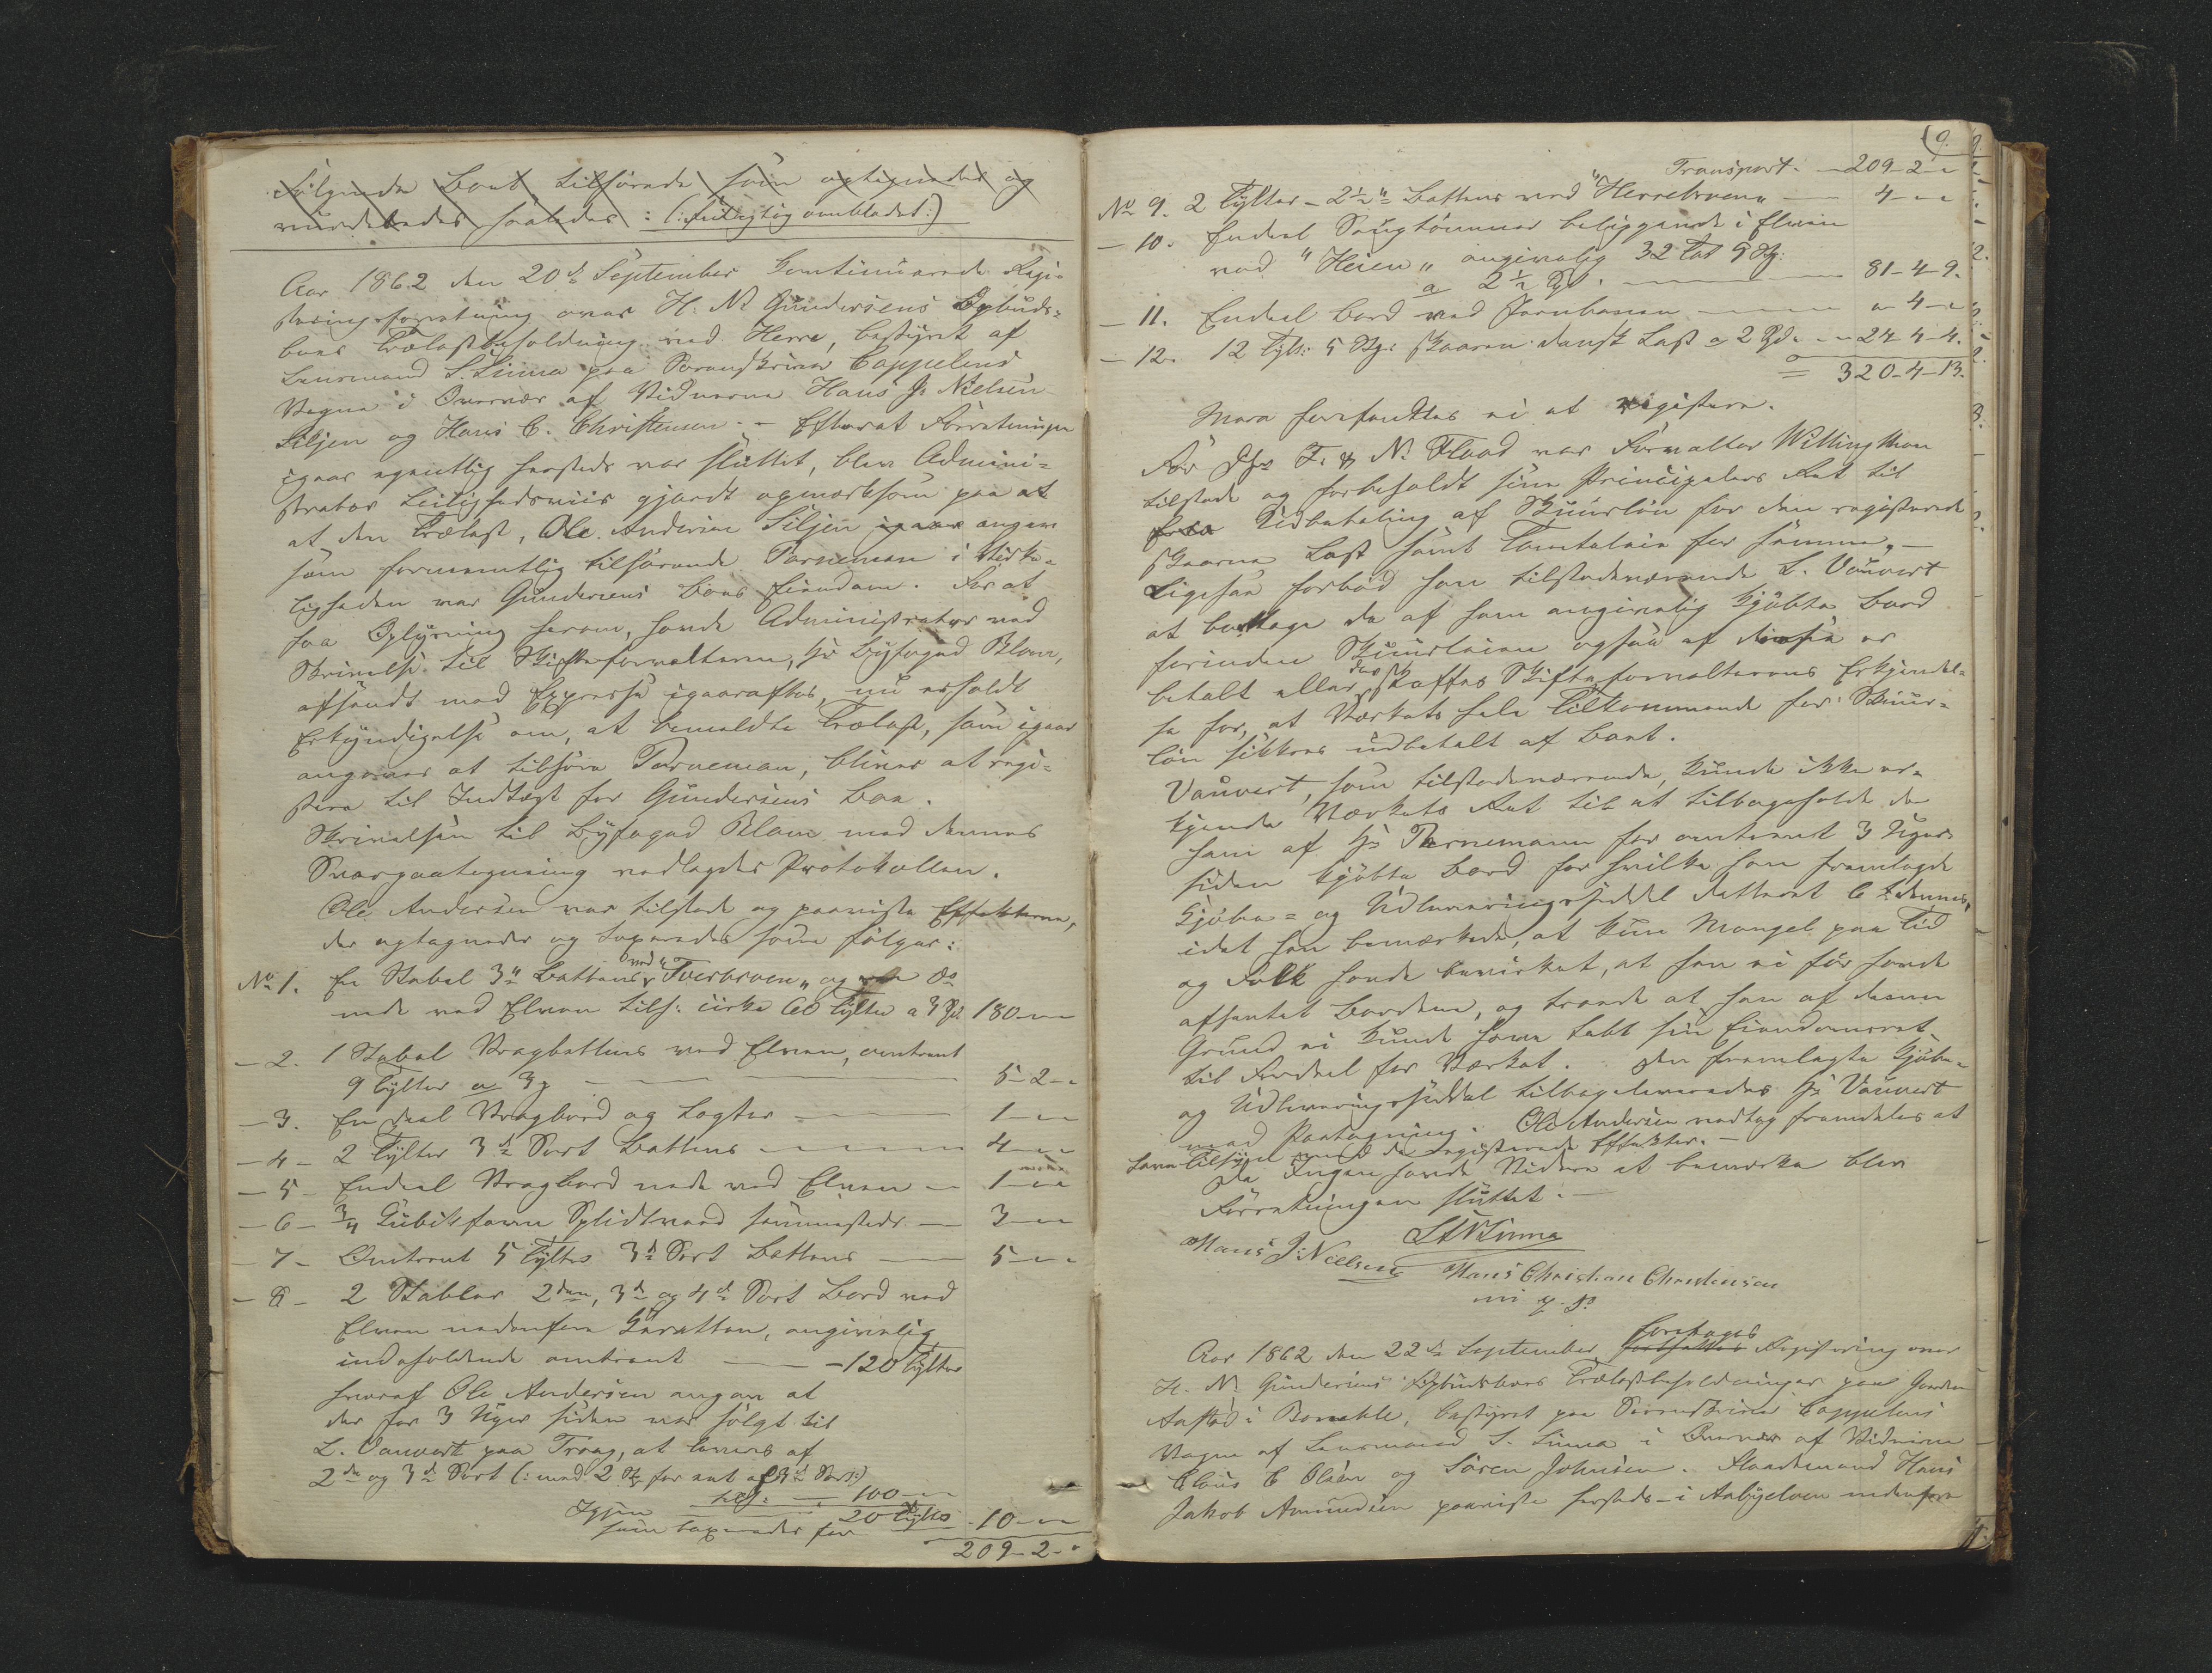 Følgende Boet tilhørende som optegnedes og
vurderedes saaledes: (: feilagtig ombladet:)
Aar 1862 den 20de September kontinuerede Regi-
streringsforretning over H. N. Gundersens Opbuds-
boes Trælastbeholdning ved Herre, bestyret af
Lensmand S. Linna paa Sorenskriver Cappelens
Vegne i Overvær af Vidnerne Hans J. Nielsen
Siljen og Hans C. Christensen. - Efterat Forretningen
igaar egentlig hersteds var sluttet, blev Admini-
strator Leilighedsviis gjordt opmerksom paa at
at den Trælast, Ole Andersen Siljen igaar angav
som formentlig tilhørende Parneman i Virke-
ligheden var Gundersens Boes Eiendom. For at
faa Oplysning herom, havde Administrator ved
Skrivelse til Skifteforvalteren, Hr Byfoged Blom,
afsendt med Expresse igaaraftes, nu erholdt
Erkyndigelse om, at bemeldte Trælast, som igaar
angaves at tilhøre Parneman, bliver at regi-
strere til Indtægt for Gundersens Boe.
Skrivelsen til Byfoged Blom med dennes
Svarpaategning vedlægges Protokollen.
Ole Andersen var tilstede og paaviste Effekterne,
der optegnedes og taxeredes som følger:
No 1. En Stabel 3" Battens ved "Tverbroen" og en do
nede ved Elven tils: cirka 60 Tylter a 3 Spd. 180 - -
- 2. 1 Stabel Vragbattens ved Elven, omtrent
9 Tylter a 3 - 5 - 2 -
- 3. En Deel Vragbord og Lægter - 1 - -
- 4 - 2 Tylter 3die Sort Battens - 4 - -
- 5 - Endeel Vragbord nede ved Elven - 1 - -
- 6 - 3/4 Kubikfavn Splidtved sammesteds - 3 - -
- 7 - Omtrent 5 Tylter 3die Sort Battens - 5 - -
- 8 - 2 Stabler 2den, 3die og 4de Sort Bord ved
Elven nedenfor, angivelig
indeholdende omtrent - 120 Tylter
hvoraf Ole Andersen angav at
der for 3 Uger siden var solgt til
L. Vauvert paa Traag, at leveres af
2den og 3die Sort (: med 2 for eet af 3die Sort:)
tils: - 100 - -
Igjen 20 Tylter
som taxeredes for - 10 - -
209 - 2 - -
9.
Transport. - 209 - 2 -
No 9. 2 Tylter - 2 1/2" Battens ved "Herrebroen" - 4 - -
- 10. Endeel Saugtømmer beliggende i Elven
ved "Heien" angivelig 32 Tylt 9 Stk:
a 2 1/2 Spd. - 81 - 4 - 9.
- 11. Endeel Bord ved Jernbanen - - 4 -
- 12. 12 Tylt: 5 Stk: skaaren dansk Last a 2 Spd. - 24 - 4 - 4.
= 320 - 4 - 13.
Mere forefandtes ei at registere.
For Dhrr F. & N. Flood var Forvalter Willingthon
tilstede og forbeholdt sine Principaler Ret til
Udbetaling af Skuurløn for den registerede
skaarne Last samt Tomteleie for samme. -
Ligesaa forbød han tilstedeværende L. Vauvert
at borttage de af ham angivelig kjøbte Bord
forinden Skuurlønnen ogsaa af disse er
betalt eller der skaffes Skifteforvalterens Erkjendel-
se for, at Værkets hele Tilkommende for Skuur-
løn sikkres udbetalt af Boet.
Vauvert, som tilstedeværende, kunde ikke er-
kjende Værkets Ret til at tilbageholde de
ham af Hr Parnemann for omtrent 3 Uger
siden kjøbte Bord for hvilke han fremlagde
Kjøbe- og Udleveringsseddel datteret 6 dennes,
idet han bemærkede, at kun Mangel paa Tid
og Folk havde bevirket, at han ei før havde
afhentet Bordene, og troede at han af denne
Grund ei kunde have tabt sin Eiendomsret
til Fordeel for Værket. Den fremlagte Kjøbe-
og Udleveringsseddel tilbageleveredes Hr Vauvert
med Paategning. Ole Andersen vedtog fremdeles at
have Tilsyn med de registerede Effekter. -
Da Ingen havde Videre at bemærke blev
Forretningen sluttet. -
S. Linna
Hans J: Nielsen Hans Christian Christensen
m. p. P.
Aar 1862 den 22de September foretoges fortsattes Registrering over
H. N. Gundersens Opbudsboes Trælastbeholdninger paa Gaarden
Aastad i Bamble, bestyret paa Sorenskriver Cappelens
Vegne af Lensmand S. Linna i Overvær af Vidnerne
Claus C Olsen og Søren Johnsen. Flaademand Hans
Jakob Amundsen paaviste hersteds - i Aabyelven nedenfor